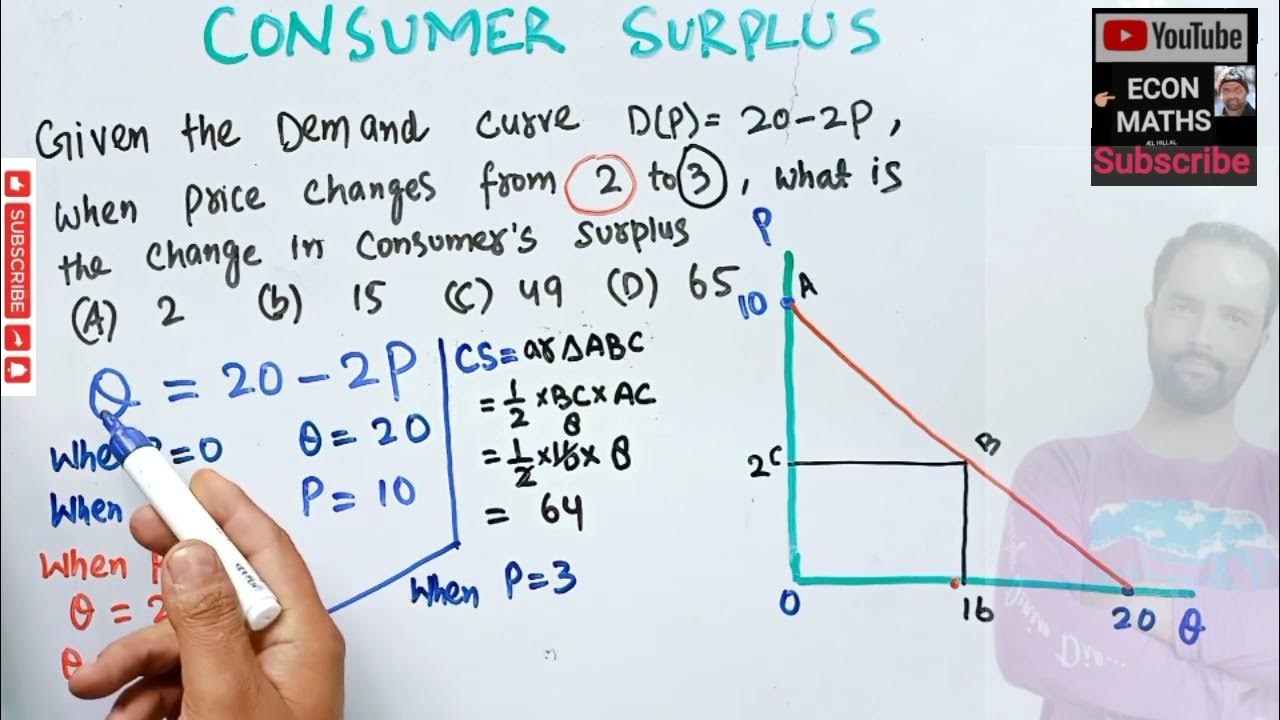 CONSUMER SURPLUS
Given the Demand curve D(P) = 20-2P,
when price changes from 2 to 3, what is
the change in consumer's surplus
(A) 2 (b) 15 (C) 49 (D) 65
Q = 20 - 2P
Whe = 0 Q = 20
When P = 10
When P
Q = 2
Q
CS = ar ΔABC
= 1/2 × BC × AC
8
= 1/2 × 16 × 8
= 64
When P = 3
P
10 A
2 C B
0 16 20 Q
YouTube
ECON
MATHS
Subscribe
SUBSCRIBE